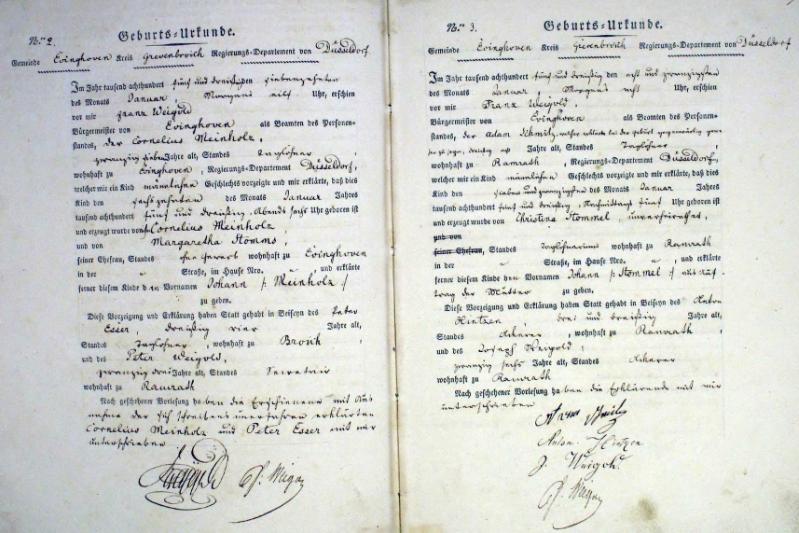 Nro 2.
Geburts-Urkunde.
Gemeinde Evinghoven Kreis Grevenbroich Regierungs-Departement von Düsseldorf
Im Jahr tausend achthundert fünf und dreißig den siebenzehnten
des Monats Januar, Morgens eilf Uhr, erschien
vor mir Franz Weigold,
Bürgermeister von Evinghoven als Beamten des Personen-
standes, der Cornelius Meinholz,
zwanzig sieben Jahre alt, Standes Taglöhner,
wohnhaft zu Evinghoven, Regierungs-Departement Düsseldorf,
welcher mir ein Kind männlichen Geschlechts vorzeigte und mir erklärte, daß dies
Kind den sechszehnten des Monats Januar Jahres
tausend achthundert fünf und dreißig, Abends sechs Uhr geboren ist
und erzeugt wurde von Cornelius Meinholz
und von Margaretha Stomms,
seiner Ehefrau, Standes ohne Gewerb wohnhaft zu Evinghoven
in der " Straße, im Hause Nro. " , und erklärte
ferner diesem Kinde den Vornamen Johann /: Meinholz :/
zu geben.
Diese Vorzeigung und Erklärung haben Statt gehabt in Beiseyn des Peter
Esser, dreißig vier Jahre alt,
Standes Taglöhner, wohnhaft zu Broich
und des Peter Weigold,
zwanzig drei Jahre alt, Standes Secretair
wohnhaft zu Ramrath
Nach geschehener Vorlesung haben die Erschienenen mit Aus-
nahme der sich schreibens unerfahren erklärten
Cornelius Meinholz und Peter Esser mit mir
unterschrieben
P. Weigold
Nro 3.
Geburts-Urkunde.
Gemeinde Evinghoven Kreis Grevenbroich Regierungs-Departement von Düsseldorf
Im Jahr tausend achthundert fünf und dreißig den acht und zwanzigsten
des Monats Januar, Morgens Uhr, erschien
vor mir Franz Weigold,
Bürgermeister von Evinghoven als Beamten des Personen-
standes, der Adam Schmitz, welcher erklärte bei der Geburt gegenwärtig gewe-
sen zu seyn, dreißig Jahre alt, Standes Taglöhner
wohnhaft zu Ramrath, Regierungs-Departement Düsseldorf,
welcher mir ein Kind männlichen Geschlechts vorzeigte und mir erklärte, daß dies
Kind den sieben und zwanzigsten des Monats Januar Jahres
tausend achthundert fünf und dreißig, Nachmittags fünf Uhr geboren ist
und erzeugt wurde von Christina Stommel, unverheirathet,
und von
seiner Ehefrau, Standes Taglöhnerin wohnhaft zu Ramrath
in der " Straße, im Hause Nro. " , und erklärte
ferner diesem Kinde den Vornamen Johann /: Stommel :/ aus Auf-
trag der Mutter zu geben.
Diese Vorzeigung und Erklärung haben Statt gehabt in Beiseyn des Anton
Hintzen, drei und dreißig Jahre alt,
Standes Ackerer, wohnhaft zu Ramrath
und des Joseph Weigold,
zwanzig sechs Jahre alt, Standes Ackerer
wohnhaft zu Ramrath
Nach geschehener Vorlesung haben die Erklärende mit mir
unterschrieben
Adam Schmitz
Anton Hintzen
J. Weigold.